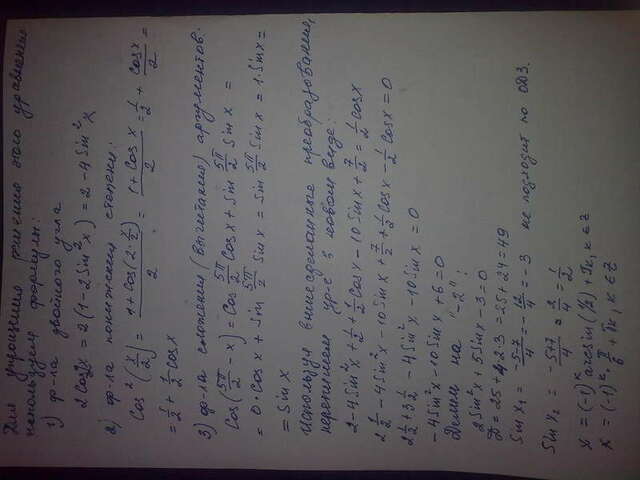 Для упрощения решения этого уравнения
используем формулы:
1) ф-ла двойного угла
2cos2x = 2(1-2Sin²x) = 2-4Sin²x
2) ф-ла понижения степени:
Cos²(x/2) = (1+Cos(2·x/2))/2 = (1+Cosx)/2 = 1/2 + Cosx/2 =
= 1/2 + 1/2 Cosx
3) ф-ла сложения (вычитания) аргументов:
Cos(5π/2 - x) = Cos 5π/2 Cosx + Sin 5π/2 Sin x =
= 0·Cosx + Sin 5π/2 Sin x = Sin 5π/2 Sinx = 1·Sinx =
= Sin x
Используя вышесделанные преобразования,
перепишем ур-е в новом виде:
2-4Sin²x + 1/2 + 1/2 Cosx - 10Sinx + 7/2 = 1/2 Cosx
2 1/2 - 4Sin²x - 10Sinx + 7/2 + 1/2 Cosx - 1/2 Cosx = 0
2 1/2 + 3 1/2 - 4Sin²x - 10Sin x = 0
-4Sin²x - 10Sinx + 6 = 0
Делим на "-2":
2Sin²x + 5Sinx - 3 = 0
D = 25+4·2·3 = 25+24 = 49
Sin x₁ = (-5-7)/4 = -12/4 = -3 не подходит по ОДЗ.
Sin x₂ = (-5+7)/4 = 2/4 = 1/2
x = (-1)ᵏ arcsin(1/2) + πk, k∈z
x = (-1)ᵏ · π/6 + πk, k∈z